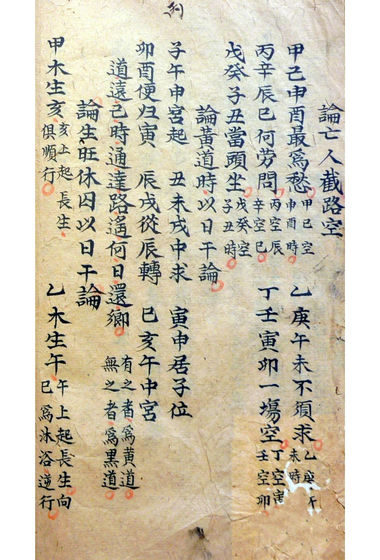 論亡人截路空
甲己申酉最為愁 甲己空申酉時 乙庚午未不須求 乙庚午未時
丙辛辰巳何勞問 丙空辰辛空巳 丁壬寅卯一塲空 丁空寅壬空卯
戊癸子丑當頭坐 戊癸空子丑時
論黃道時以日干論
子午申宮起 丑未戌中求 寅申居子位
卯酉便归寅 辰戌從辰轉 巳亥午中宮
道遠己時通達路遙何日還鄉 有之者為黃道無之者為黑道
論生旺休囚以日干論
甲木生亥 亥上起長生俱順行 乙木生午 午上起長生向巳為沐浴逆行